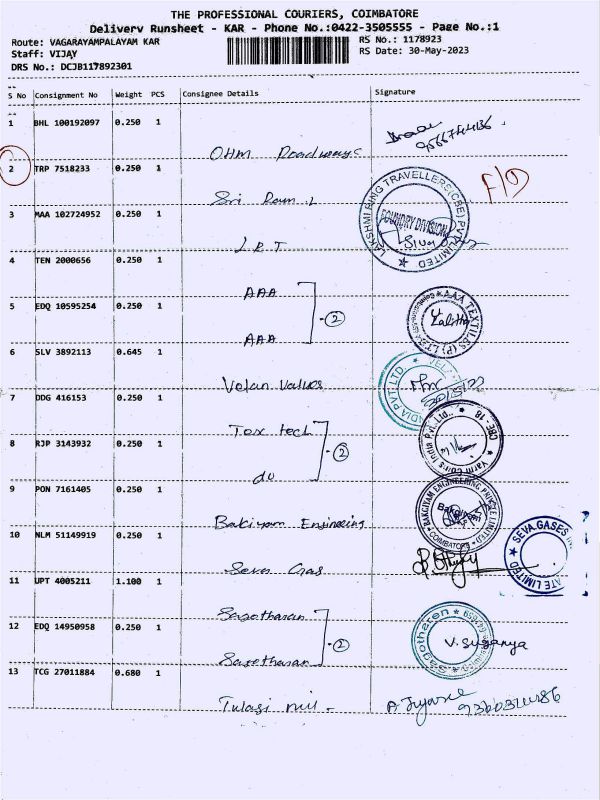 THE PROFESSIONAL COURIERS, COIMBATORE
Delivery Runsheet - KAR - Phone No.:0422-3505555 - Page No.:1
Route: VAGARAYAMPALAYAM KAR RS No.: 1178923
Staff: VIJAY RS Date: 30-May-2023
DRS No.: DCJB117892301
S No Consignment No Weight PCS Consignee Details Signature
1 BHL 100192097 0.250 1
OHM Roadways
2 TRP 7518233 0.250 1 F/D
Sri Ram L
3 MAA 102724952 0.250 1 LAKSHMI RING TRAVELLERS(CBE) PVT LIMITED FOUNDRY DIVISION
4 TEN 2000656 0.250 1
AAA
5 EDQ 10595254 0.250 1 2 AAA TEXTILES (P) LTD
AAA
6 SLV 3892113 0.645 1
Velan Valves
7 DDG 416153 0.250 1
Tex tech
8 RJP 3143932 0.250 1 2 CBE - 18
du
9 PON 7161405 0.250 1 BAKGIYAM ENGINEERING PRIVATE LIMITED COIMBATORE
Bakiyam Engineering
10 NLM 51149919 0.250 1 SEVA GASES
Seva Gas
11 UPT 4005211 1.100 1
Sagotharan
12 EDQ 14950958 0.250 1 2 Sagotharen V. Suganya
Sagotharan
13 TCG 27011884 0.680 1
Tulasi mill